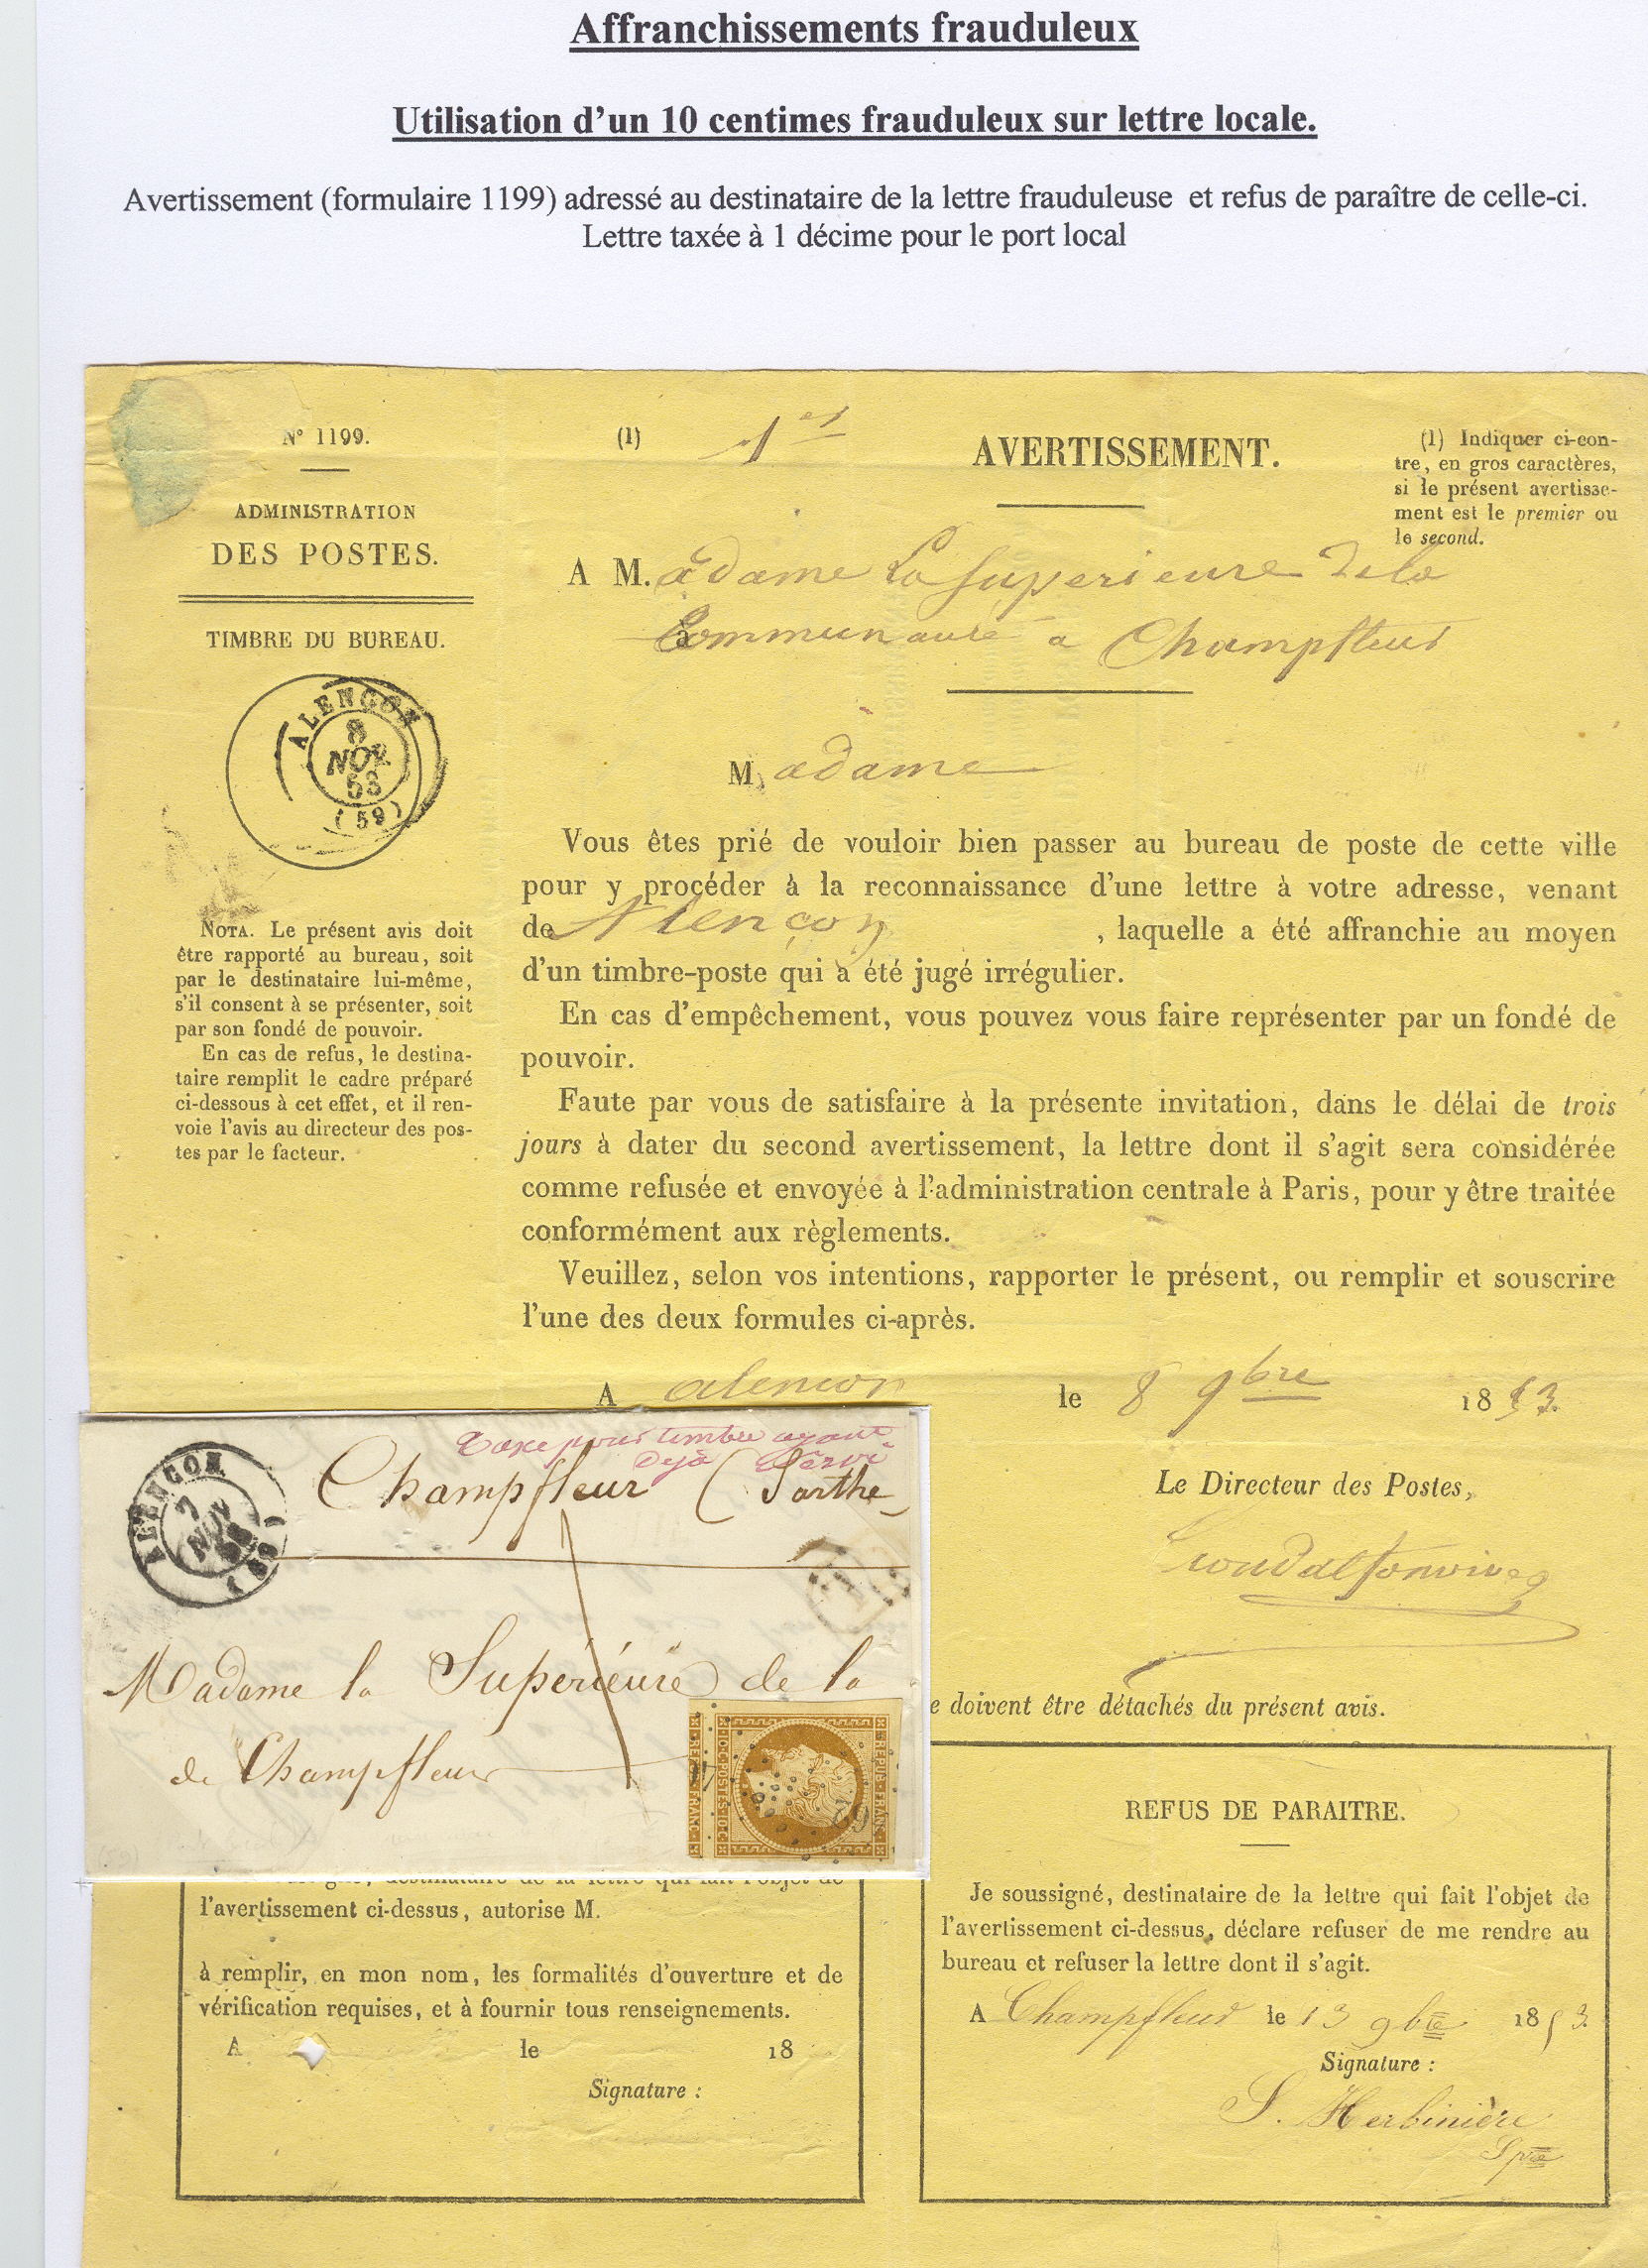 Affranchissements frauduleux
Utilisation d'un 10 centimes frauduleux sur lettre locale.
Avertissement (formulaire 1199) adressé au destinataire de la lettre frauduleuse et refus de paraître de celle-ci.
Lettre taxée à 1 décime pour le port local
N° 1199.
ADMINISTRATION
DES POSTES.
TIMBRE DU BUREAU.
ALENÇON
8
NOV.
53
(59)
NOTA. Le présent avis doit
être rapporté au bureau, soit
par le destinataire lui-même,
s'il consent à se présenter, soit
par son fondé de pouvoir.
En cas de refus, le destina-
taire remplit le cadre préparé
ci-dessous à cet effet, et il ren-
voie l'avis au directeur des pos-
tes par le facteur.
(1) 1er AVERTISSEMENT.
(1) Indiquer ci-con-
tre, en gros caractères,
si le présent avertisse-
ment est le premier ou
le second.
A M.adame La Superieure de la
à Communauté a Champfleur
Madame
Vous êtes prié de vouloir bien passer au bureau de poste de cette ville
pour y procéder à la reconnaissance d'une lettre à votre adresse, venant
de Alençon , laquelle a été affranchie au moyen
d'un timbre-poste qui a été jugé irrégulier.
En cas d'empêchement, vous pouvez vous faire représenter par un fondé de
pouvoir.
Faute par vous de satisfaire à la présente invitation, dans le délai de trois
jours à dater du second avertissement, la lettre dont il s'agit sera considérée
comme refusée et envoyée à l'administration centrale à Paris, pour y être traitée
conformément aux règlements.
Veuillez, selon vos intentions, rapporter le présent, ou remplir et souscrire
l'une des deux formules ci-après.
A alencon le 8 9bre 1853.
Le Directeur des Postes,
e doivent être détachés du présent avis.
ALENÇON
7
NOV.
53
(59)
Taxe pour timbre ayant
déjà servi
Champfleur (Sarthe
1
Madame la Supérieure de la
de Champfleur
REPUB. FRANC.
10.C. POSTES. 10.C.
REPUB. FRANC.
l'avertissement ci-dessus, autorise M.
à remplir, en mon nom, les formalités d'ouverture et de
vérification requises, et à fournir tous renseignements.
A le 18
Signature :
REFUS DE PARAITRE.
Je soussigné, destinataire de la lettre qui fait l'objet de
l'avertissement ci-dessus, déclare refuser de me rendre au
bureau et refuser la lettre dont il s'agit.
A Champfleur le 13 9bre 1853.
Signature :
S. Herbinière
Spre